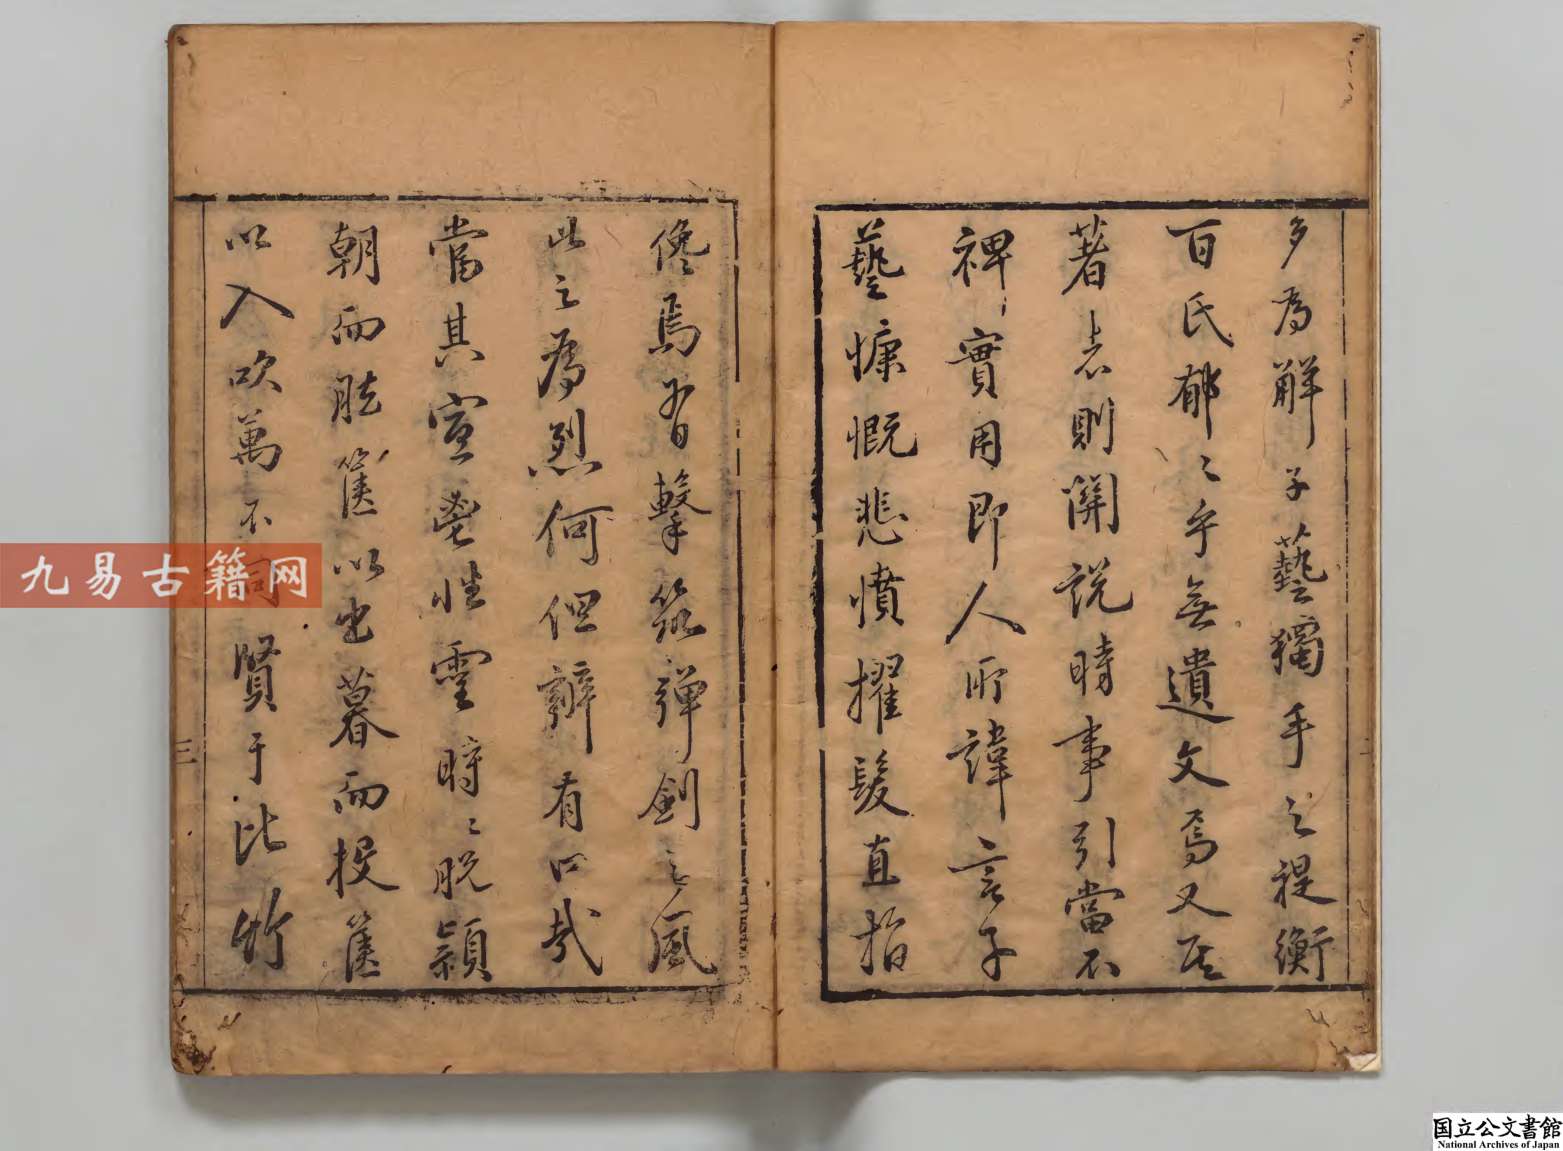 多為解子藝獨手之提衡
百氏郁〻乎無遺文焉又其
著志則開說時事引當不
裨實用即人所諱言子
藝慷慨悲憤擢髮直指
儳焉有擊筑彈劍之風
此之為烈何但辭有口哉
當其宣鬯性靈時〻脫穎
朝而胠篋以出暮而投篋
以入吹萬不同賢于比竹
二
三
九易古籍网
国立公文書館
National Archives of Japan